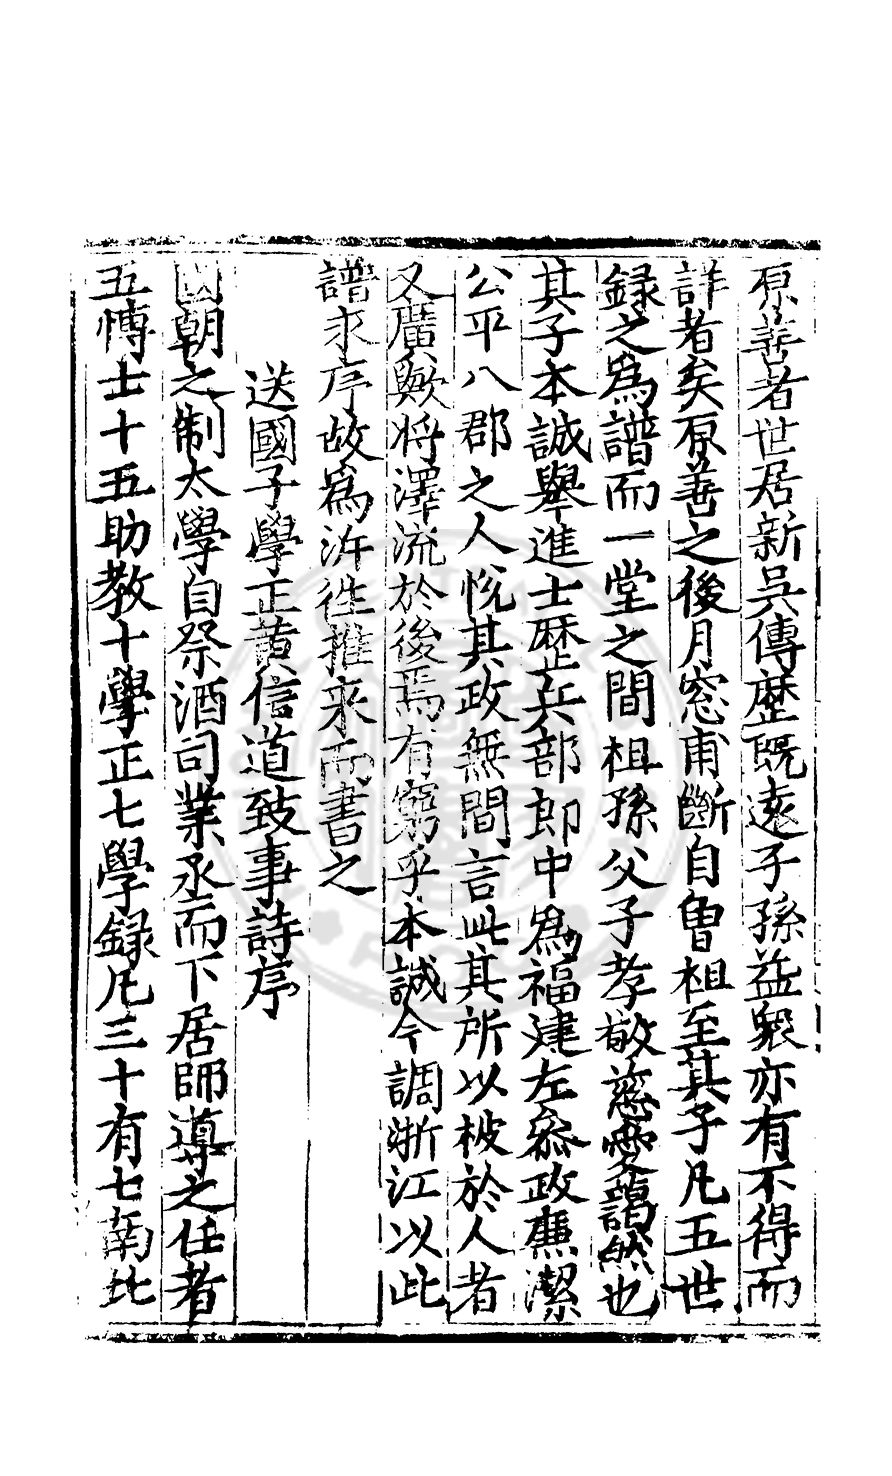 原善者世居新吳傳歷既遠子孫益衆亦有不得而
詳者矣原善之後月窓甫斷自曽祖至其子凡五世
録之為譜而一堂之間祖孫父子孝敬慈愛藹然也
其子本誠舉進士歷兵部郎中為福建左叅政亷潔
公平八郡之人恱其政無間言此其所以被於人者
又廣歟將澤流於後焉有窮乎本誠今調浙江以此
譜求序故為泝徃推來而書之
送國子學正黄信道致事詩序
國朝之制太學自祭酒司業丞而下居師導之任者
五博士十五助教十學正七學録凡三十有七南北